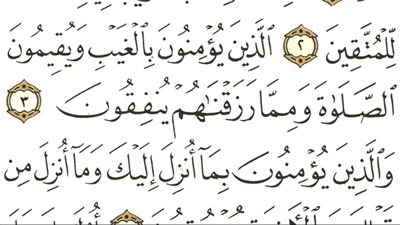 لِّلْمُتَّقِينَ ٢ ٱلَّذِينَ يُؤْمِنُونَ بِٱلْغَيْبِ وَيُقِيمُونَ
ٱلصَّلَوٰةَ وَمِمَّا رَزَقْنَٰهُمْ يُنفِقُونَ ٣
وَٱلَّذِينَ يُؤْمِنُونَ بِمَآ أُنزِلَ إِلَيْكَ وَمَآ أُنزِلَ مِن